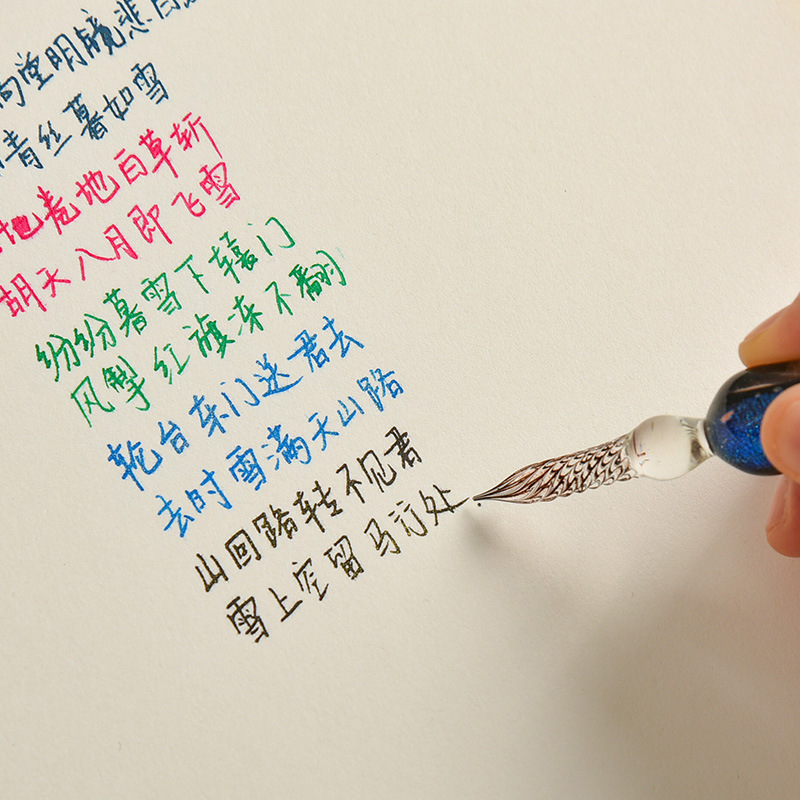 高堂明镜悲白
青丝暮如雪
地卷地白草斩
胡天八月即飞雪
纷纷暮雪下辕门
风掣红旗冻不翻
轮台东门送君去
去时雪满天山路
山回路转不见君
雪上空留马行处